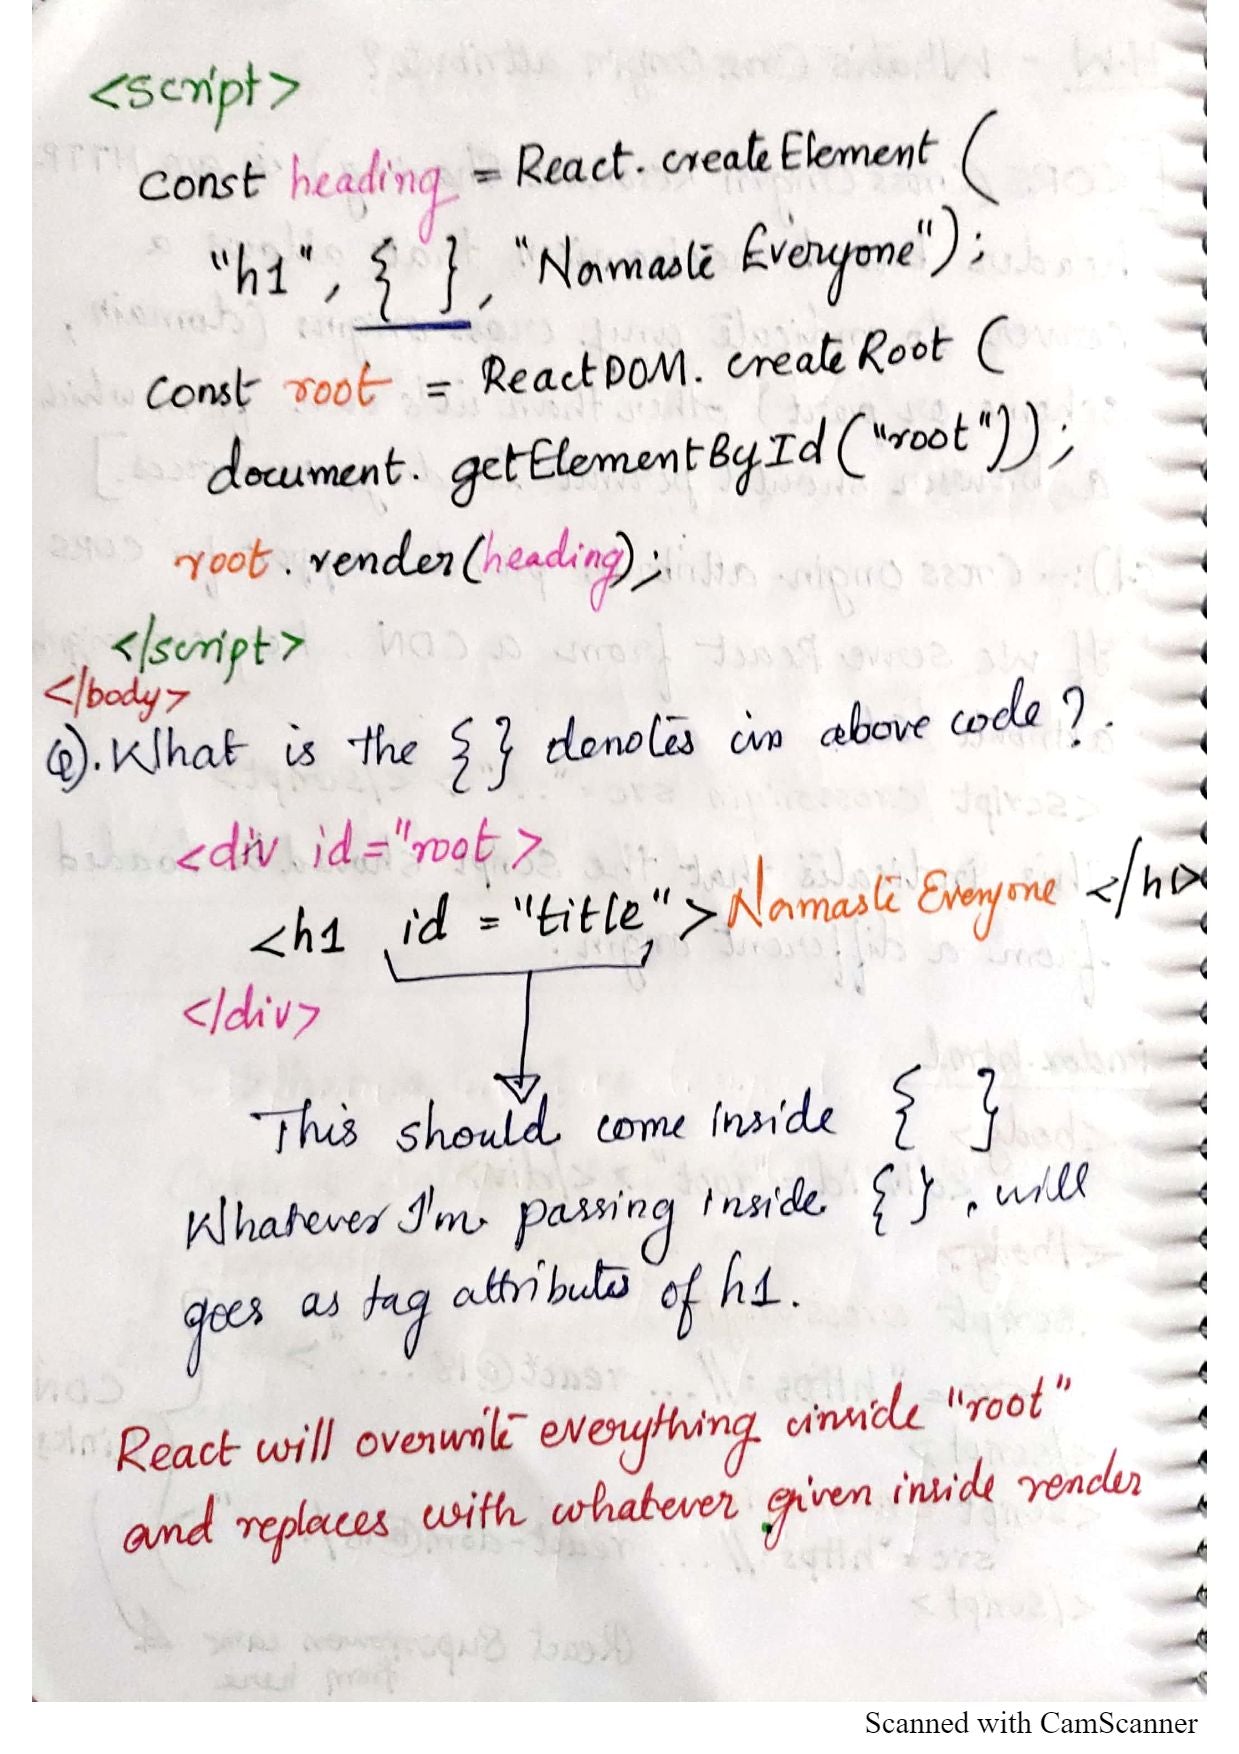 <script>
const heading = React. createElement (
"h1", { }, "Namaste Everyone");
const root = ReactDOM. createRoot (
document. getElementById ("root"));
root. render(heading);
</script>
</body>
Q). What is the { } denotes in above code?.
<div id="root >
<h1 id = "title" > Namaste Everyone </h1>
</div>
This should come inside { }
Whatever I'm passing inside { }. will
goes as tag attributes of h1.
React will overwrite everything inside "root"
and replaces with whatever given inside render
Scanned with CamScanner